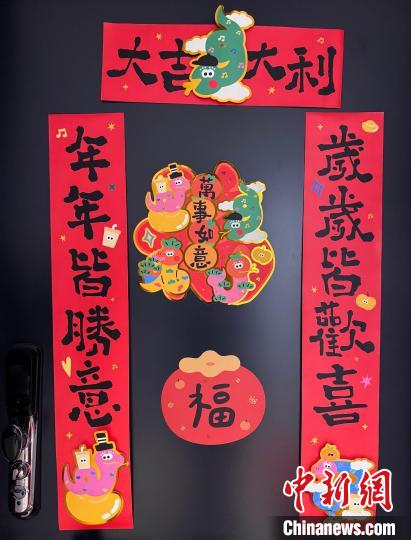 大吉大利
年年皆勝意
歲歲皆歡喜
萬事如意
福
中新网
Chinanews.com